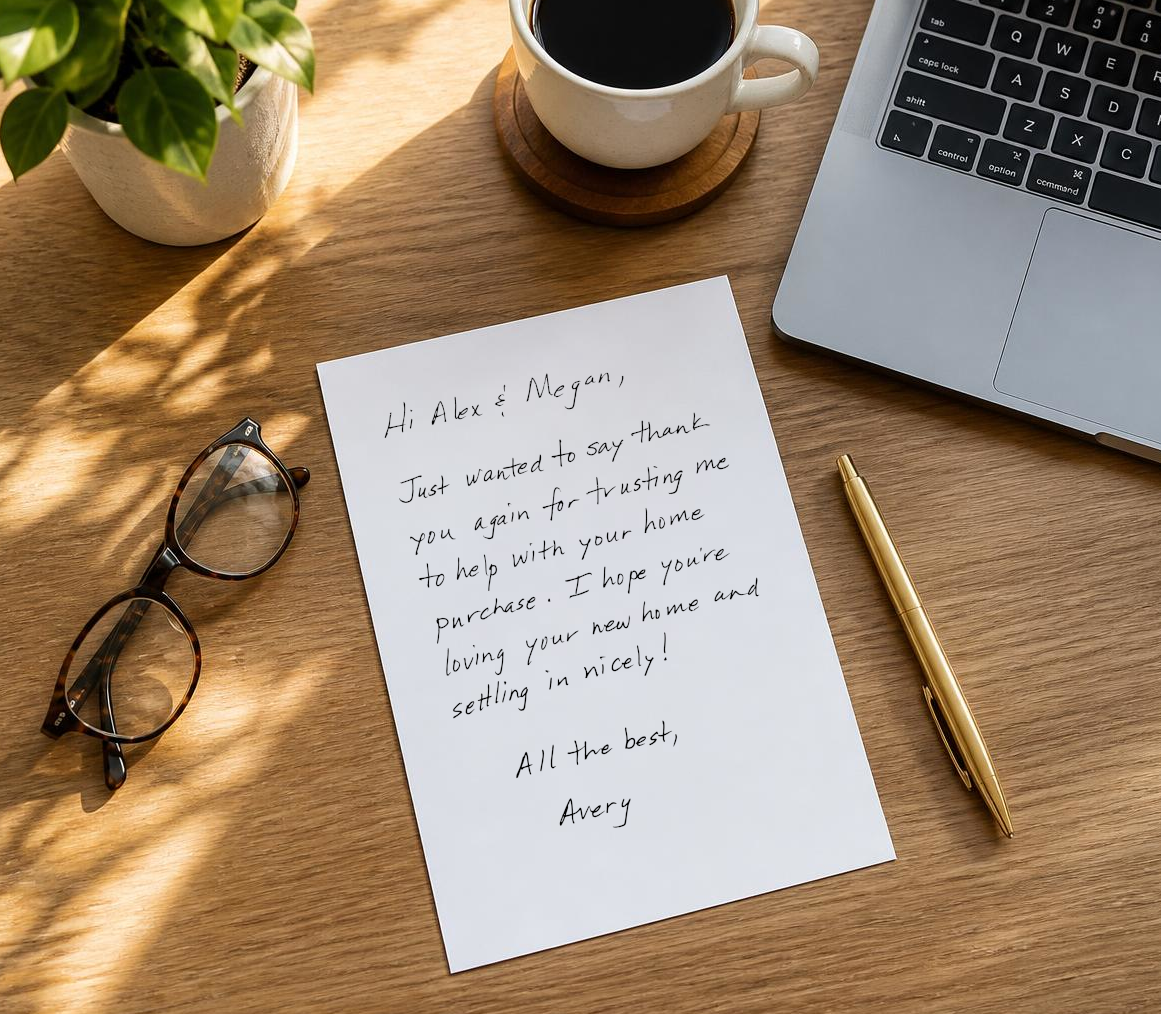 tab
Q
W
E
R
2
caps lock
A
S
D
shift
Z
X
C
control
option
command
Hi Alex & Megan,
Just wanted to say thank
you again for trusting me
to help with your home
purchase. I hope you're
loving your new home and
settling in nicely!
All the best,
Avery